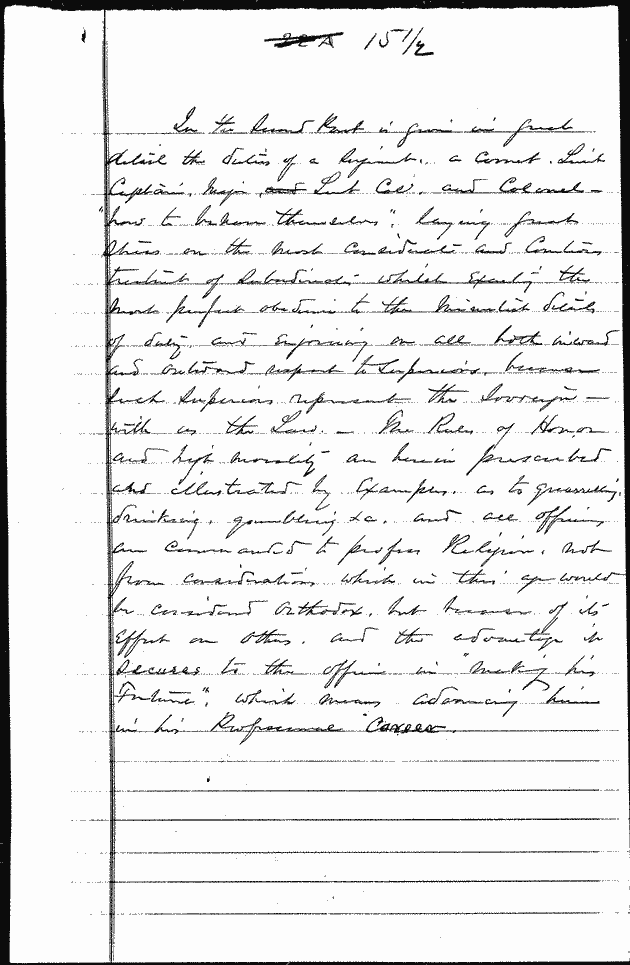 22A 15 1/2
In the Second Part is given in great
detail the duties of a Regiment. a Cornet. Lieut
Captain, Major, and Lieut Col. and Colonel –
"how to behave themselves", laying great
Stress on the most considerate and Courteous
treatment of Subordinates whilst Exacting the
most perfect obedience to the minutest details
of duty, and enjoining on all both inward
and outward respect to Superiors, because
such Superiors represent the Sovereign –
with as the Law. – The Rules of Honor
and high morality are herein prescribed
and illustrated by Examples. as to quarrelling,
drinking, gambling &c. and all officers
are commanded to profess Religion, not
from considerations which in this age would
be considered Orthodox, but because of its
Effect on others. and the advantage it
secures to the officer in "making his
Fortune", which means advancing him
in his Professional Career.